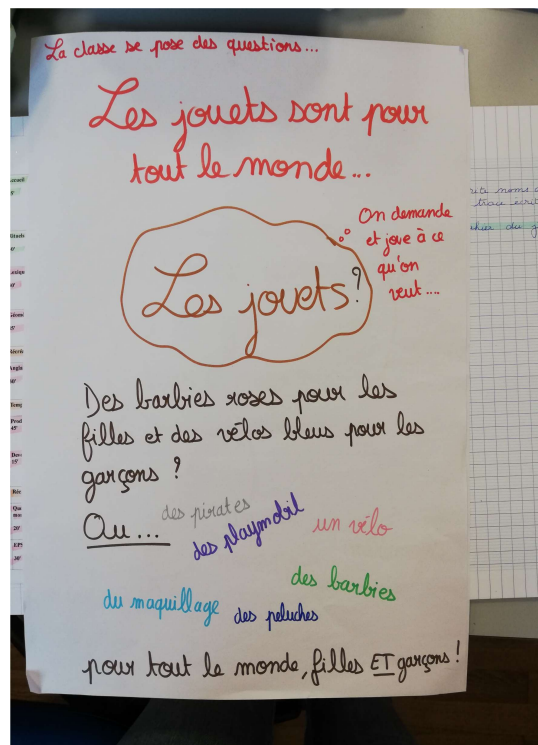 La classe se pose des questions...
Les jouets sont pour
tout le monde...
On demande
et joue à ce
qu'on
veut....
Les jouets?
Des barbies roses pour les
filles et des vélos bleus pour les
garçons ?
Ou...
des pirates
des playmobil
un vélo
des barbies
du maquillage
des peluches
pour tout le monde, filles ET garçons !
noms
trace écrit
du